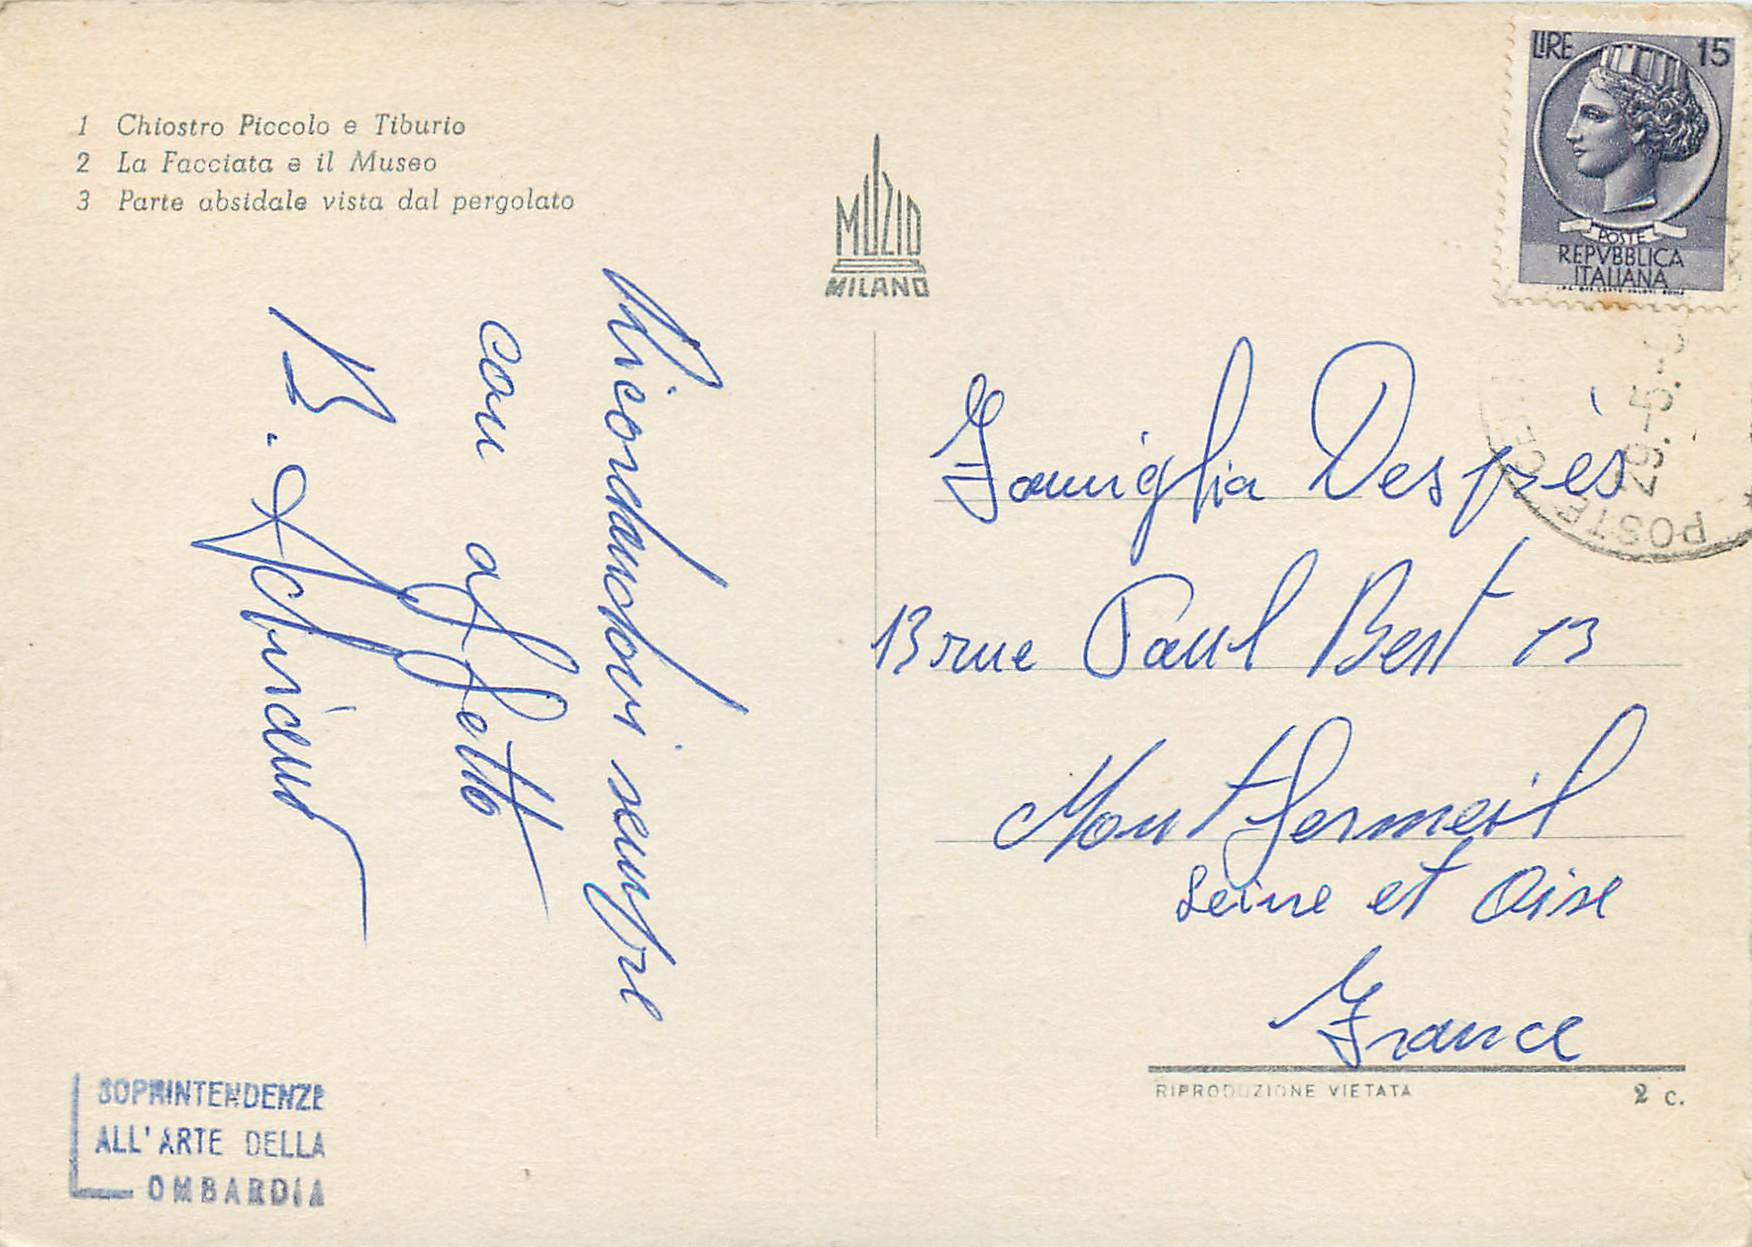 1 Chiostro Piccolo e Tiburio
2 La Facciata e il Museo
3 Parte absidale vista dal pergolato
MUZIO
MILANO
LIRE 15
POSTE
REPVBBLICA
ITALIANA
POSTE
29.-5.
Ricordandovi sempre
con affetto
B.
Famiglia Desprès
13 rue Paul Bert 13
Montfermeil
Seine et Oise
France
SOPRINTENDENZE
ALL'ARTE DELLA
LOMBARDIA
RIPRODUZIONE VIETATA
2 c.